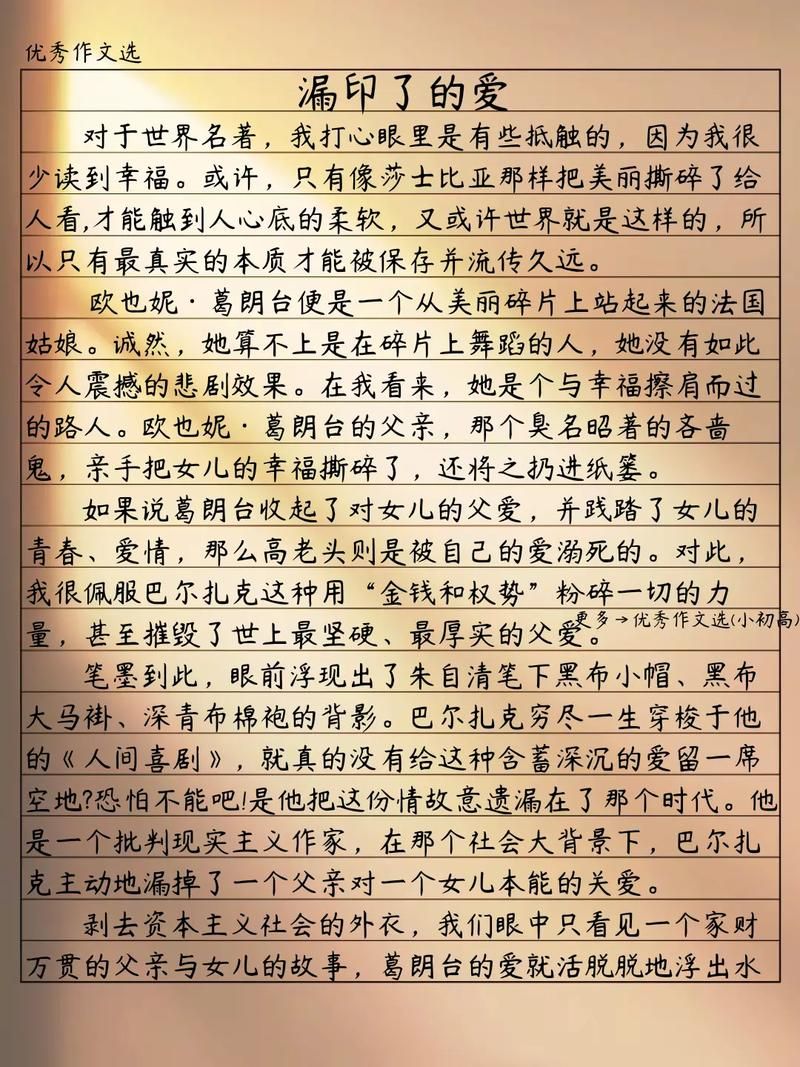 优秀作文选
漏印了的爱
对于世界名著，我打心眼里是有些抵触的，因为我很
少读到幸福。或许，只有像莎士比亚那样把美丽撕碎了给
人看,才能触到人心底的柔软，又或许世界就是这样的，所
以只有最真实的本质才能被保存并流传久远。
欧也妮·葛朗台便是一个从美丽碎片上站起来的法国
姑娘。诚然，她算不上是在碎片上舞蹈的人，她没有如此
令人震撼的悲剧效果。在我看来，她是个与幸福擦肩而过
的路人。欧也妮·葛朗台的父亲，那个臭名昭著的吝啬
鬼，亲手把女儿的幸福撕碎了，还将之扔进纸篓。
如果说葛朗台收起了对女儿的父爱，并践踏了女儿的
青春、爱情，那么高老头则是被自己的爱溺死的。对此，
我很佩服巴尔扎克这种用“金钱和权势”粉碎一切的力
量，甚至摧毁了世上最坚硬、最厚实的父爱。
更多→优秀作文选(小初高)
笔墨到此，眼前浮现出了朱自清笔下黑布小帽、黑布
大马褂、深青布棉袍的背影。巴尔扎克穷尽一生穿梭于他
的《人间喜剧》，就真的没有给这种含蓄深沉的爱留一席
空地?恐怕不能吧!是他把这份情故意遗漏在了那个时代。他
是一个批判现实主义作家，在那个社会大背景下，巴尔扎
克主动地漏掉了一个父亲对一个女儿本能的关爱。
剥去资本主义社会的外衣，我们眼中只看见一个家财
万贯的父亲与女儿的故事，葛朗台的爱就活脱脱地浮出水